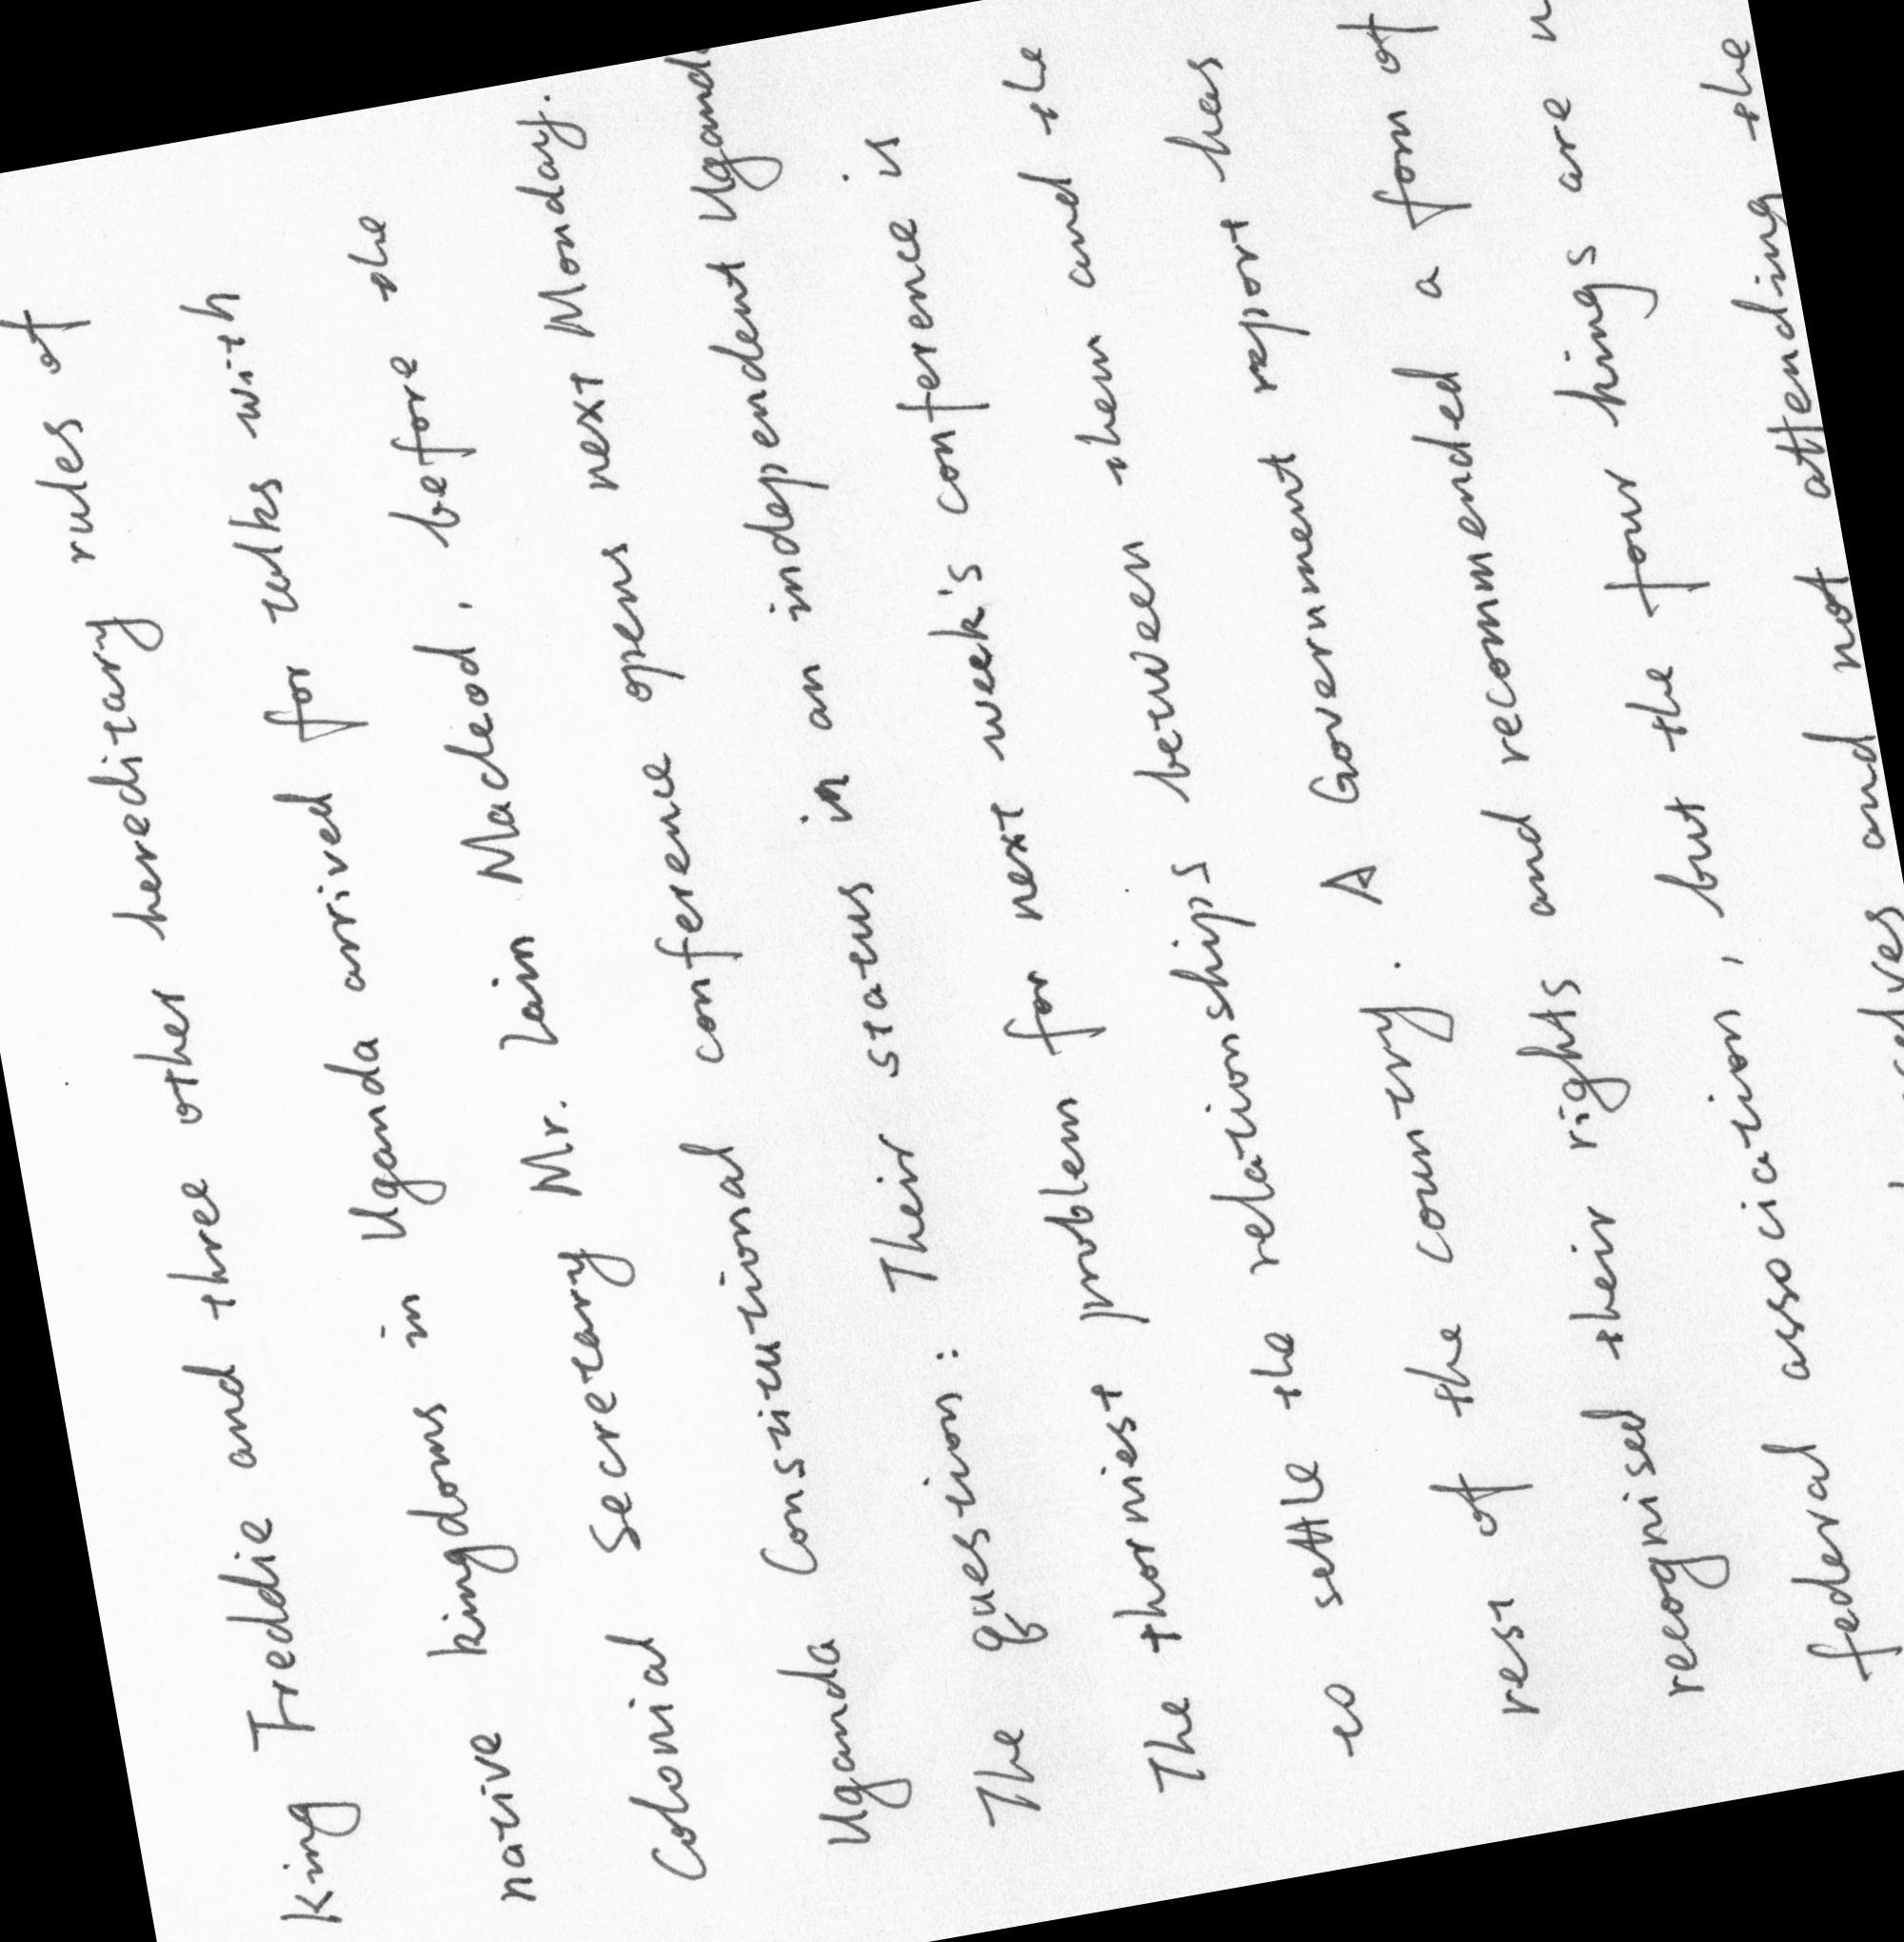 King Freddie and three other hereditary rules of
native kingdoms in Uganda arrived for talks with
Colonial Secretary Mr. Iain Macleod, before the
Uganda Constitutional conference opens next Monday.
The question: Their status in an independent Uganda
The thorniest problem for next week's conference is
to settle the relationships between them and the
rest of the country. A Government report has
recognised their rights and recommended a form of
federal association, but the four kings are
and not attending the